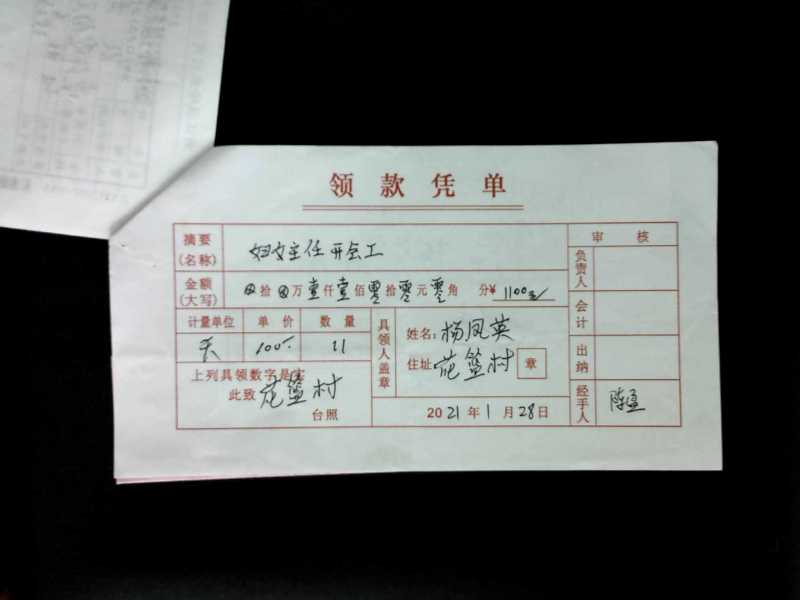 领款凭单
摘要(名称) 妇女主任开会工
审核
金额(大写) ⊗拾⊗万壹仟壹佰零拾零元零角 分¥1100元
负责人
计量单位 单价 数量
天 100元 11
具领人盖章
姓名:杨凤英
住址 花篮村 章
会计
出纳
上列具领数字是实
此致 花篮村
台照
2021年1月28日
经手人 陈